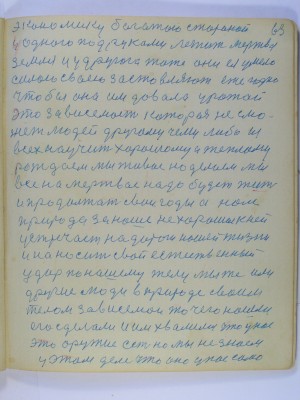 экономику богатою стороной 63
у одного под руками лежит мертвая
земля и у другого тоже они ея умело
силою своею заставляют ежегодно
чтобы она им довала урожай
это зависемость которая не смо-
жет людей другому чему либо и
всех научит хорошему и теплому
рождаем мы живое но делаем мы
все на мертвое надо будет жит
и продолжат свои годы а
природа за наше нехорошее в ней
встречает на дороги нашей жизни
и наносит свой естественный
удар по нашему телу мы же или
другие люди в природе своим
телом зависемои то чего нашли
его сделали и им хвалимся это у нас
это оружие ест но мы не знаем
у этом деле что оно у нас само